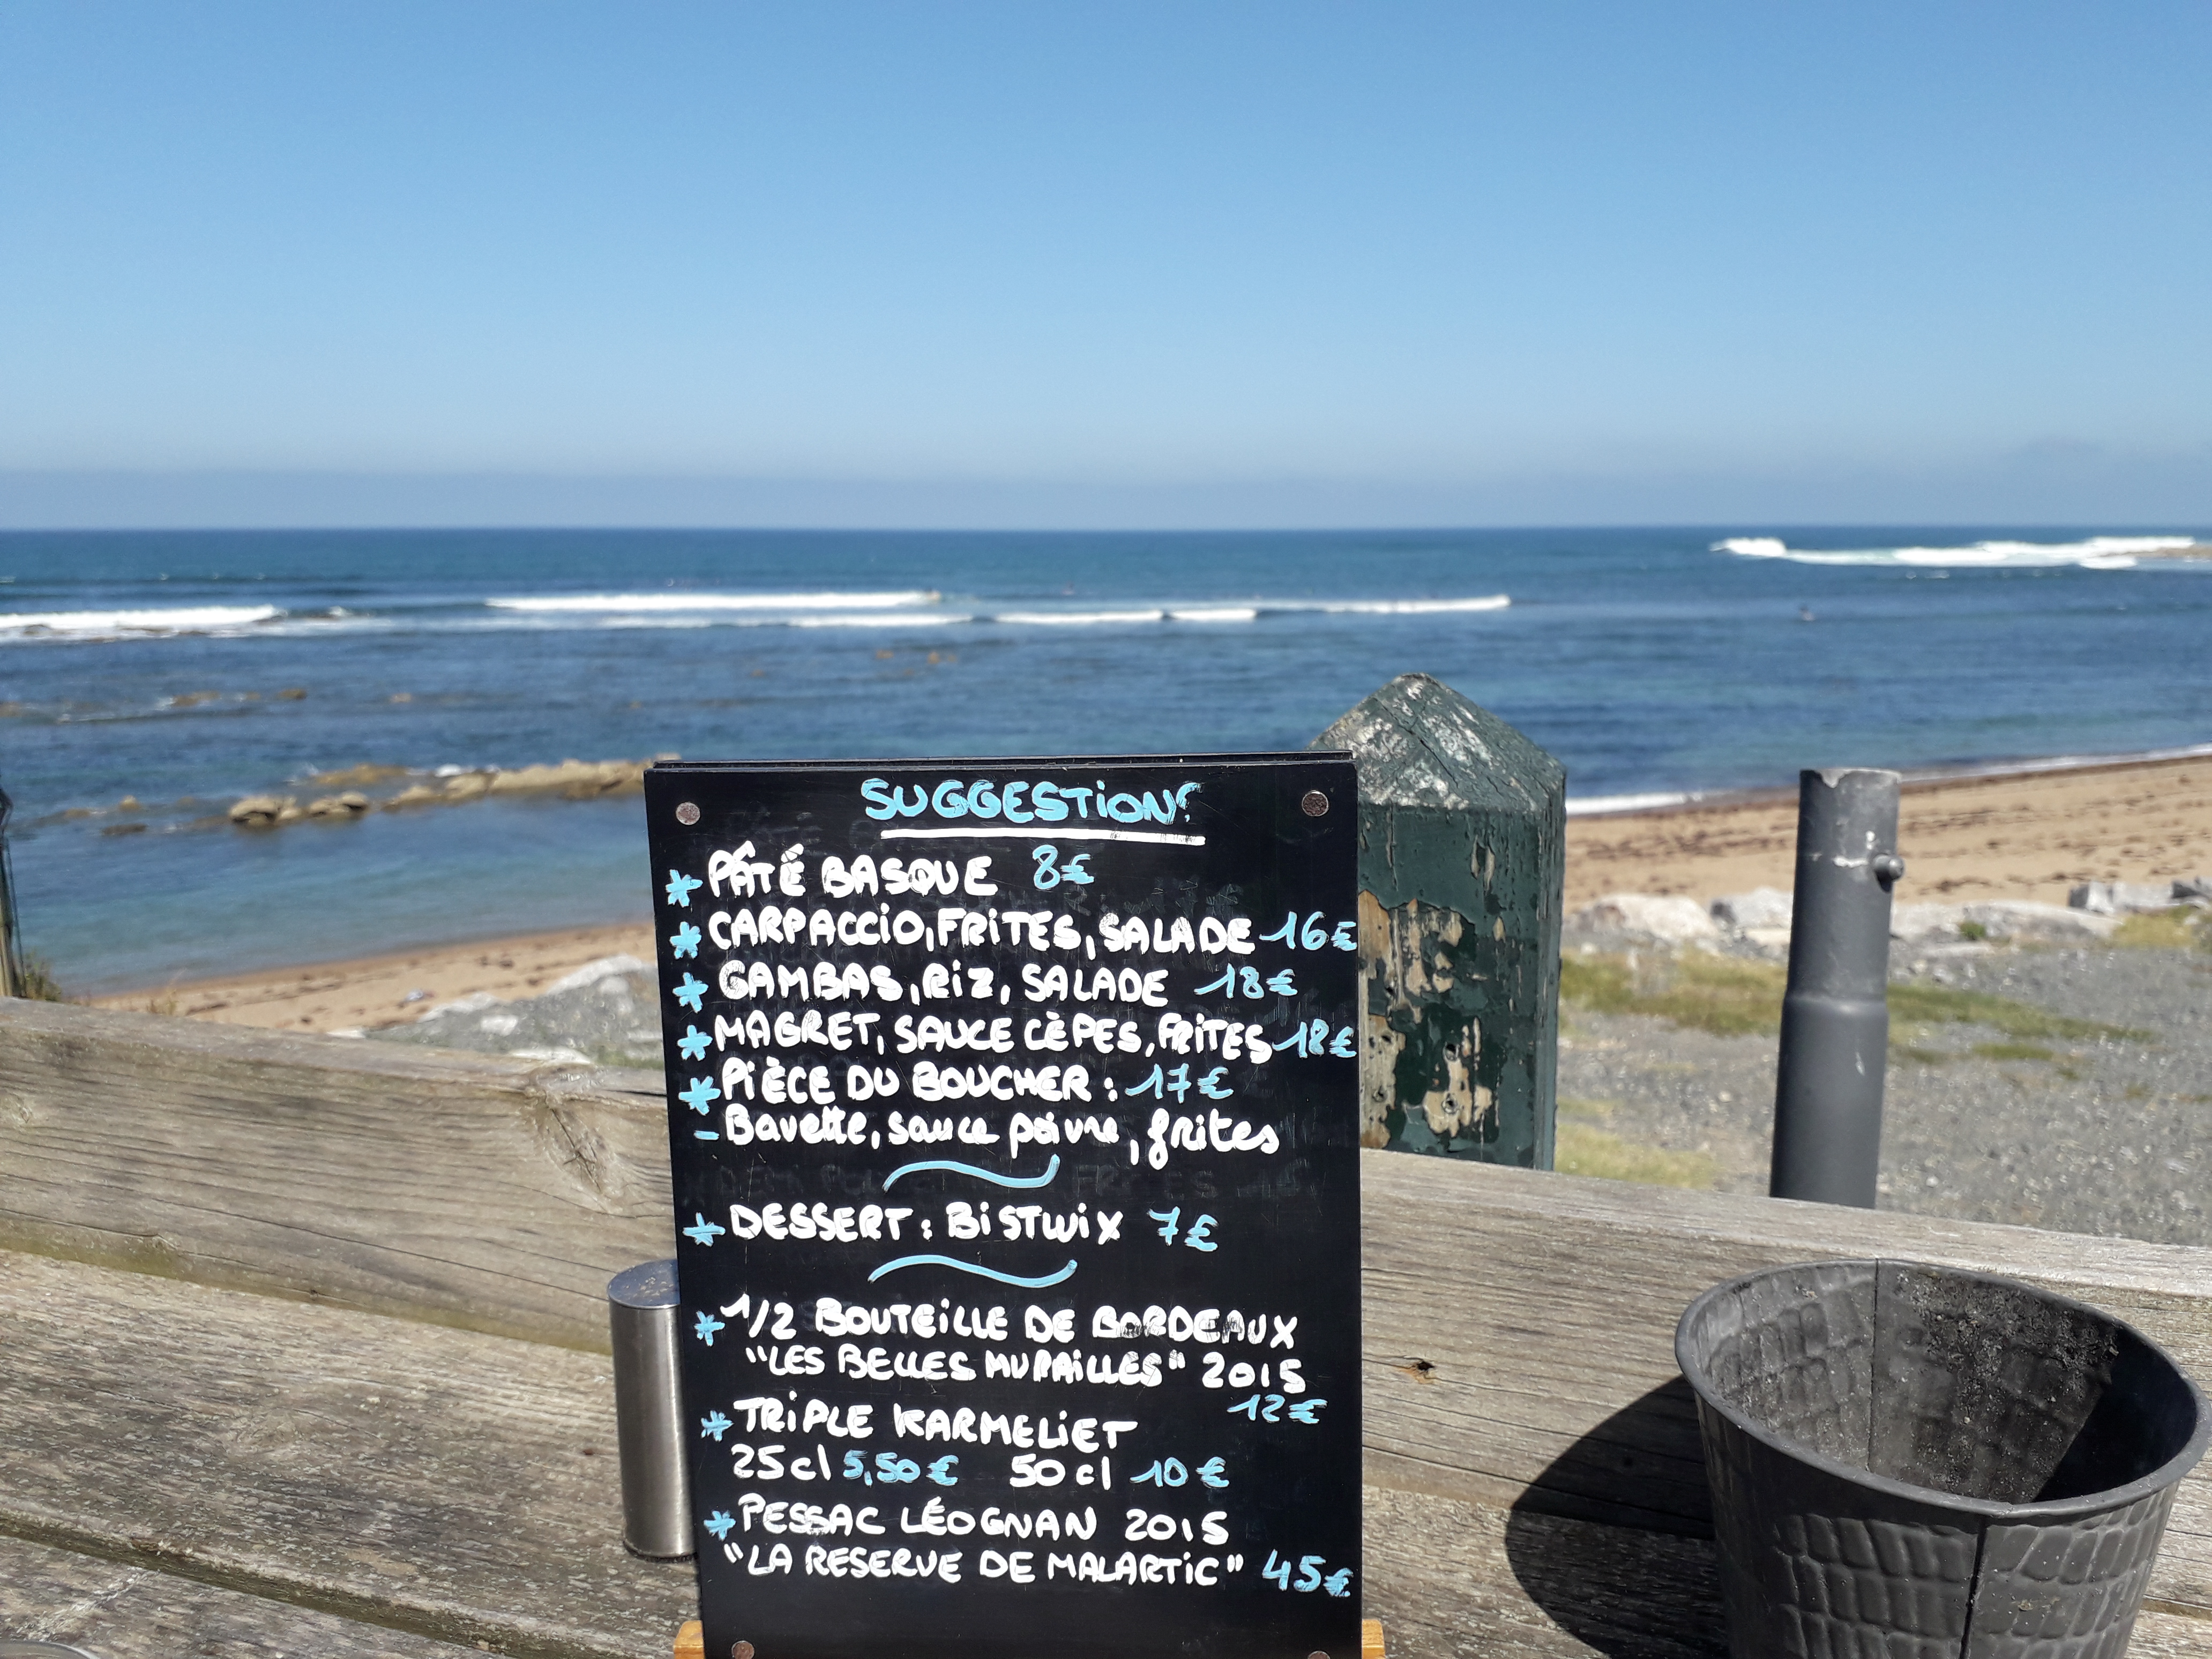 SUGGESTIONS
* PÂTÉ BASQUE 8€
* CARPACCIO, FRITES, SALADE 16€
* GAMBAS, RIZ, SALADE 18€
* MAGRET, SAUCE CÈPES, FRITES 18€
* PIÈCE DU BOUCHER : 17€
- Bavette, sauce poivre, frites
* DESSERT : BISTWIX 7€
* 1/2 BOUTEILLE DE BORDEAUX
"LES BELLES MURAILLES" 2015
12€
* TRIPLE KARMELIET
25cl 5,50€ 50cl 10€
* PESSAC LÉOGNAN 2015
"LA RESERVE DE MALARTIC" 45€